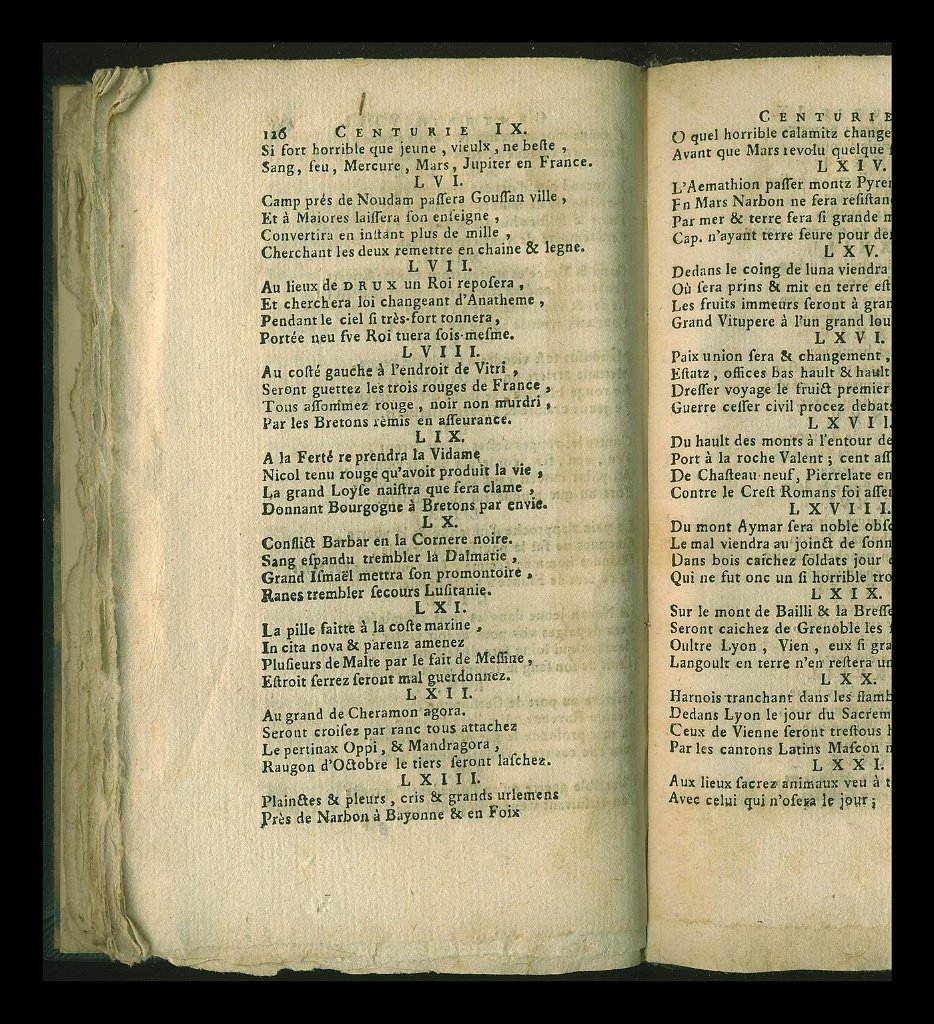 126 CENTURIE IX.
Si fort horrible que jeune , vieulx , ne beſte ,
Sang, feu, Mercure , Mars, Jupiter en France.
L V I.
Camp prés de Noudam paſſera Gouſſan ville ,
Et à Maiores laiſſera ſon enſeigne ,
Convertira en inſtant plus de mille ,
Cherchant les deux remettre en chaine & legne.
L V I I.
Au lieux de DRUX un Roi repoſera ,
Et cherchera loi changeant d'Anatheme ,
Pendant le ciel ſi très-fort tonnera ,
Portée neu ſve Roi tuera ſois-meſme.
L V I I I.
Au coſté gauche à l'endroit de Vitri ,
Seront guettez les trois rouges de France ,
Tous aſſommez rouge , noir non murdri ,
Par les Bretons remis en aſſeurance.
L I X.
A la Ferté re prendra la Vidame
Nicol tenu rouge qu'avoit produit la vie ,
La grand Loyſe naiſtra que ſera clame ,
Donnant Bourgogne à Bretons par envie.
L X.
Conflict Barbar en la Cornere noire.
Sang eſpandu trembler la Dalmatie ,
Grand Iſmaël mettra ſon promontoire ,
Ranes trembler ſecours Luſitanie.
L X I.
La pille faitte à la coſte marine ,
In cita nova & parenz amenez
Pluſieurs de Malte par le fait de Meſſine ,
Eſtroit ſerrez ſeront mal guerdonnez.
L X I I.
Au grand de Cheramon agora.
Seront croiſez par ranc tous attachez
Le pertinax Oppi , & Mandragora ,
Raugon d'Octobre le tiers ſeront laſchez.
L X I I I.
Plainctes & pleurs , cris & grands urlemens
Près de Narbon à Bayonne & en Foix
CENTURIE
O quel horrible calamitz change
Avant que Mars revolu quelque
L X I V.
L'Aemathion paſſer montz Pyren
En Mars Narbon ne fera reſiſtan
Par mer & terre fera ſi grande m
Cap. n'ayant terre ſeure pour de
L X V.
Dedans le coing de luna viendra
Où ſera prins & mit en terre eſt
Les fruits immeurs ſeront à gran
Grand Vitupere à l'un grand lou
L X V I.
Paix union ſera & changement ,
Eſtatz , offices bas hault & hault
Dreſſer voyage le fruict premier
Guerre ceſſer civil procez debat
L X V I I
Du hault des monts à l'entour de
Port à la roche Valent ; cent aſſ
De Chaſteau neuf, Pierrelate en
Contre le Creſt Romans foi aſſe
L X V I I I.
Du mont Aymar ſera noble obſc
Le mal viendra au joinct de ſonn
Dans bois caichez ſoldats jour
Qui ne fut onc un ſi horrible tro
L X I X.
Sur le mont de Bailli & la Breſſe
Seront caichez de Grenoble les
Oultre Lyon , Vien , eux ſi gra
Langoult en terre n'en reſtera un
L X X.
Harnois tranchant dans les flamb
Dedans Lyon le jour du Sacrem
Ceux de Vienne ſeront treſtous
Par les cantons Latins Maſcon n
L X X I.
Aux lieux ſacrez animaux veu à t
Avec celui qui n'oſera le jour ;